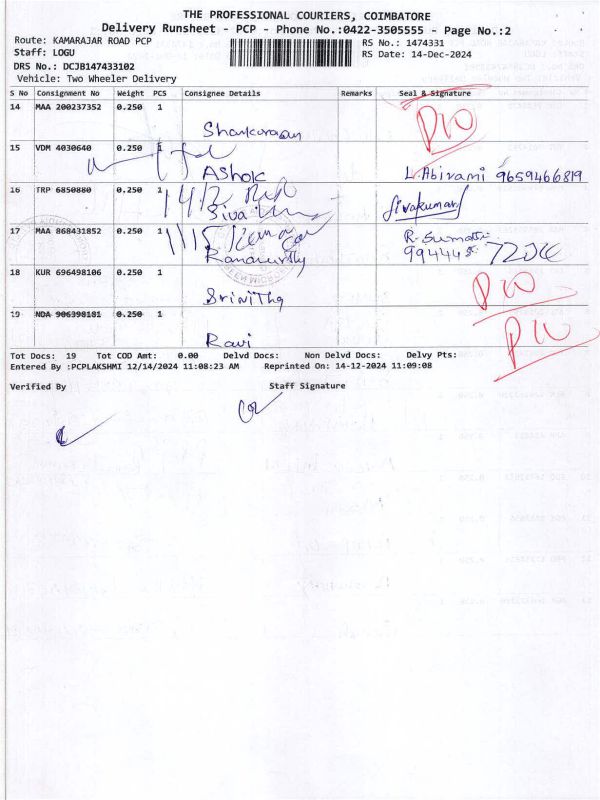 THE PROFESSIONAL COURIERS, COIMBATORE
Delivery Runsheet - PCP - Phone No.:0422-3505555 - Page No.:2
Route: KAMARAJAR ROAD PCP
RS No.: 1474331
Staff: LOGU
RS Date: 14-Dec-2024
DRS No.: DCJB147433102
Vehicle: Two Wheeler Delivery
S No Consignment No Weight PCS Consignee Details Remarks Seal & Signature
14 MAA 200237352 0.250 1
Shankaraan
15 VDM 4030640 0.250 1
Ashok L.Abirami 9659466819
16 TRP 6850880 0.250 1
Siva Sivakumar
17 MAA 868431852 0.250 1
R. Sumathi
Ramamurthy
18 KUR 696498106 0.250 1
Srinitha
19 NDA 906398181 0.250 1
Ravi
Tot Docs: 19 Tot COD Amt: 0.00 Delvd Docs: Non Delvd Docs: Delvy Pts:
Entered By :PCPLAKSHMI 12/14/2024 11:08:23 AM Reprinted On: 14-12-2024 11:09:08
Verified By Staff Signature